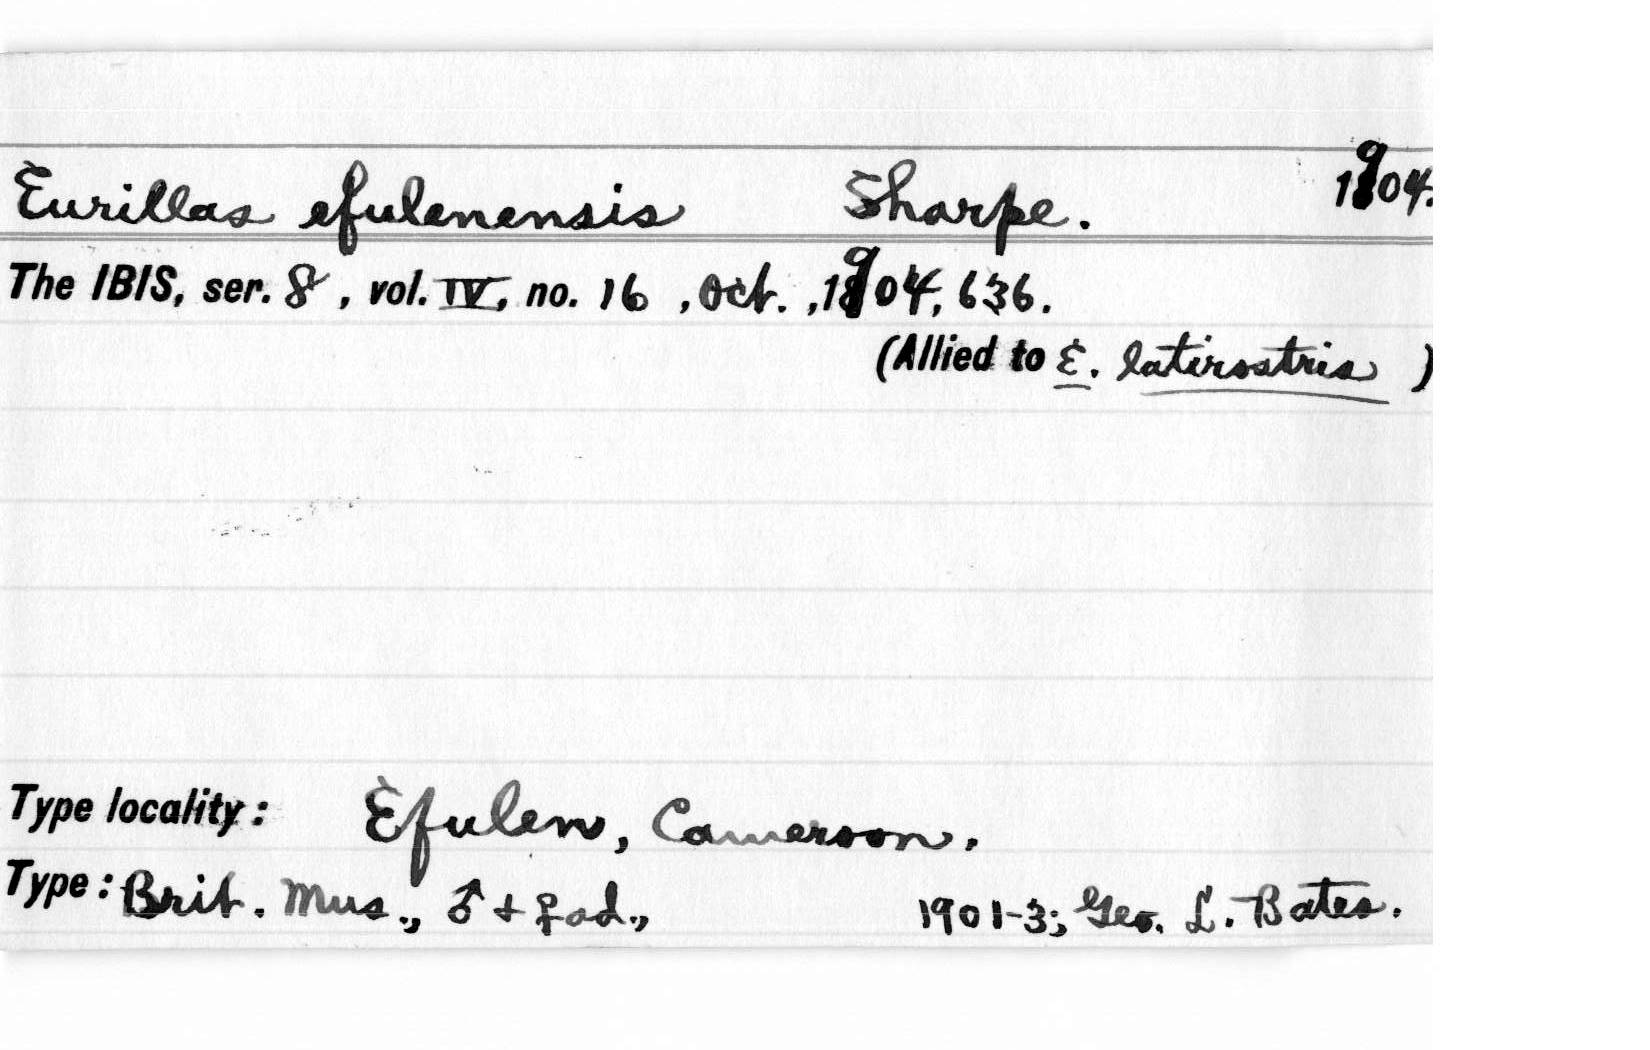 Eurillas efulenensis Sharpe. 1904.
The IBIS, ser. 8, vol. IV, no. 16, Oct., 1904, 636.
(Allied to E. latirostris )
Type locality: Efulen, Cameroon.
Type: Brit. Mus., ♂ + ♀ ad., 1901-3; Geo. L. Bates.